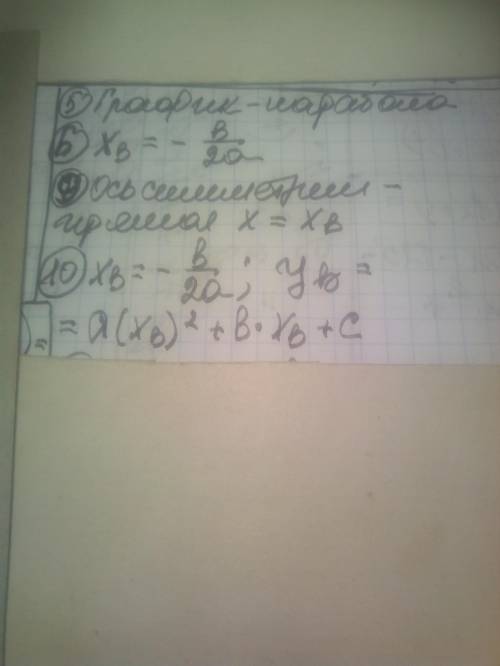 ⑤ График - парабола
⑥ x_в = - в/2a
⑨ Ось симметрии -
прямая x = x_в
⑩ x_в = - в/2a; y_в =
= a(x_в)² + в·x_в + c